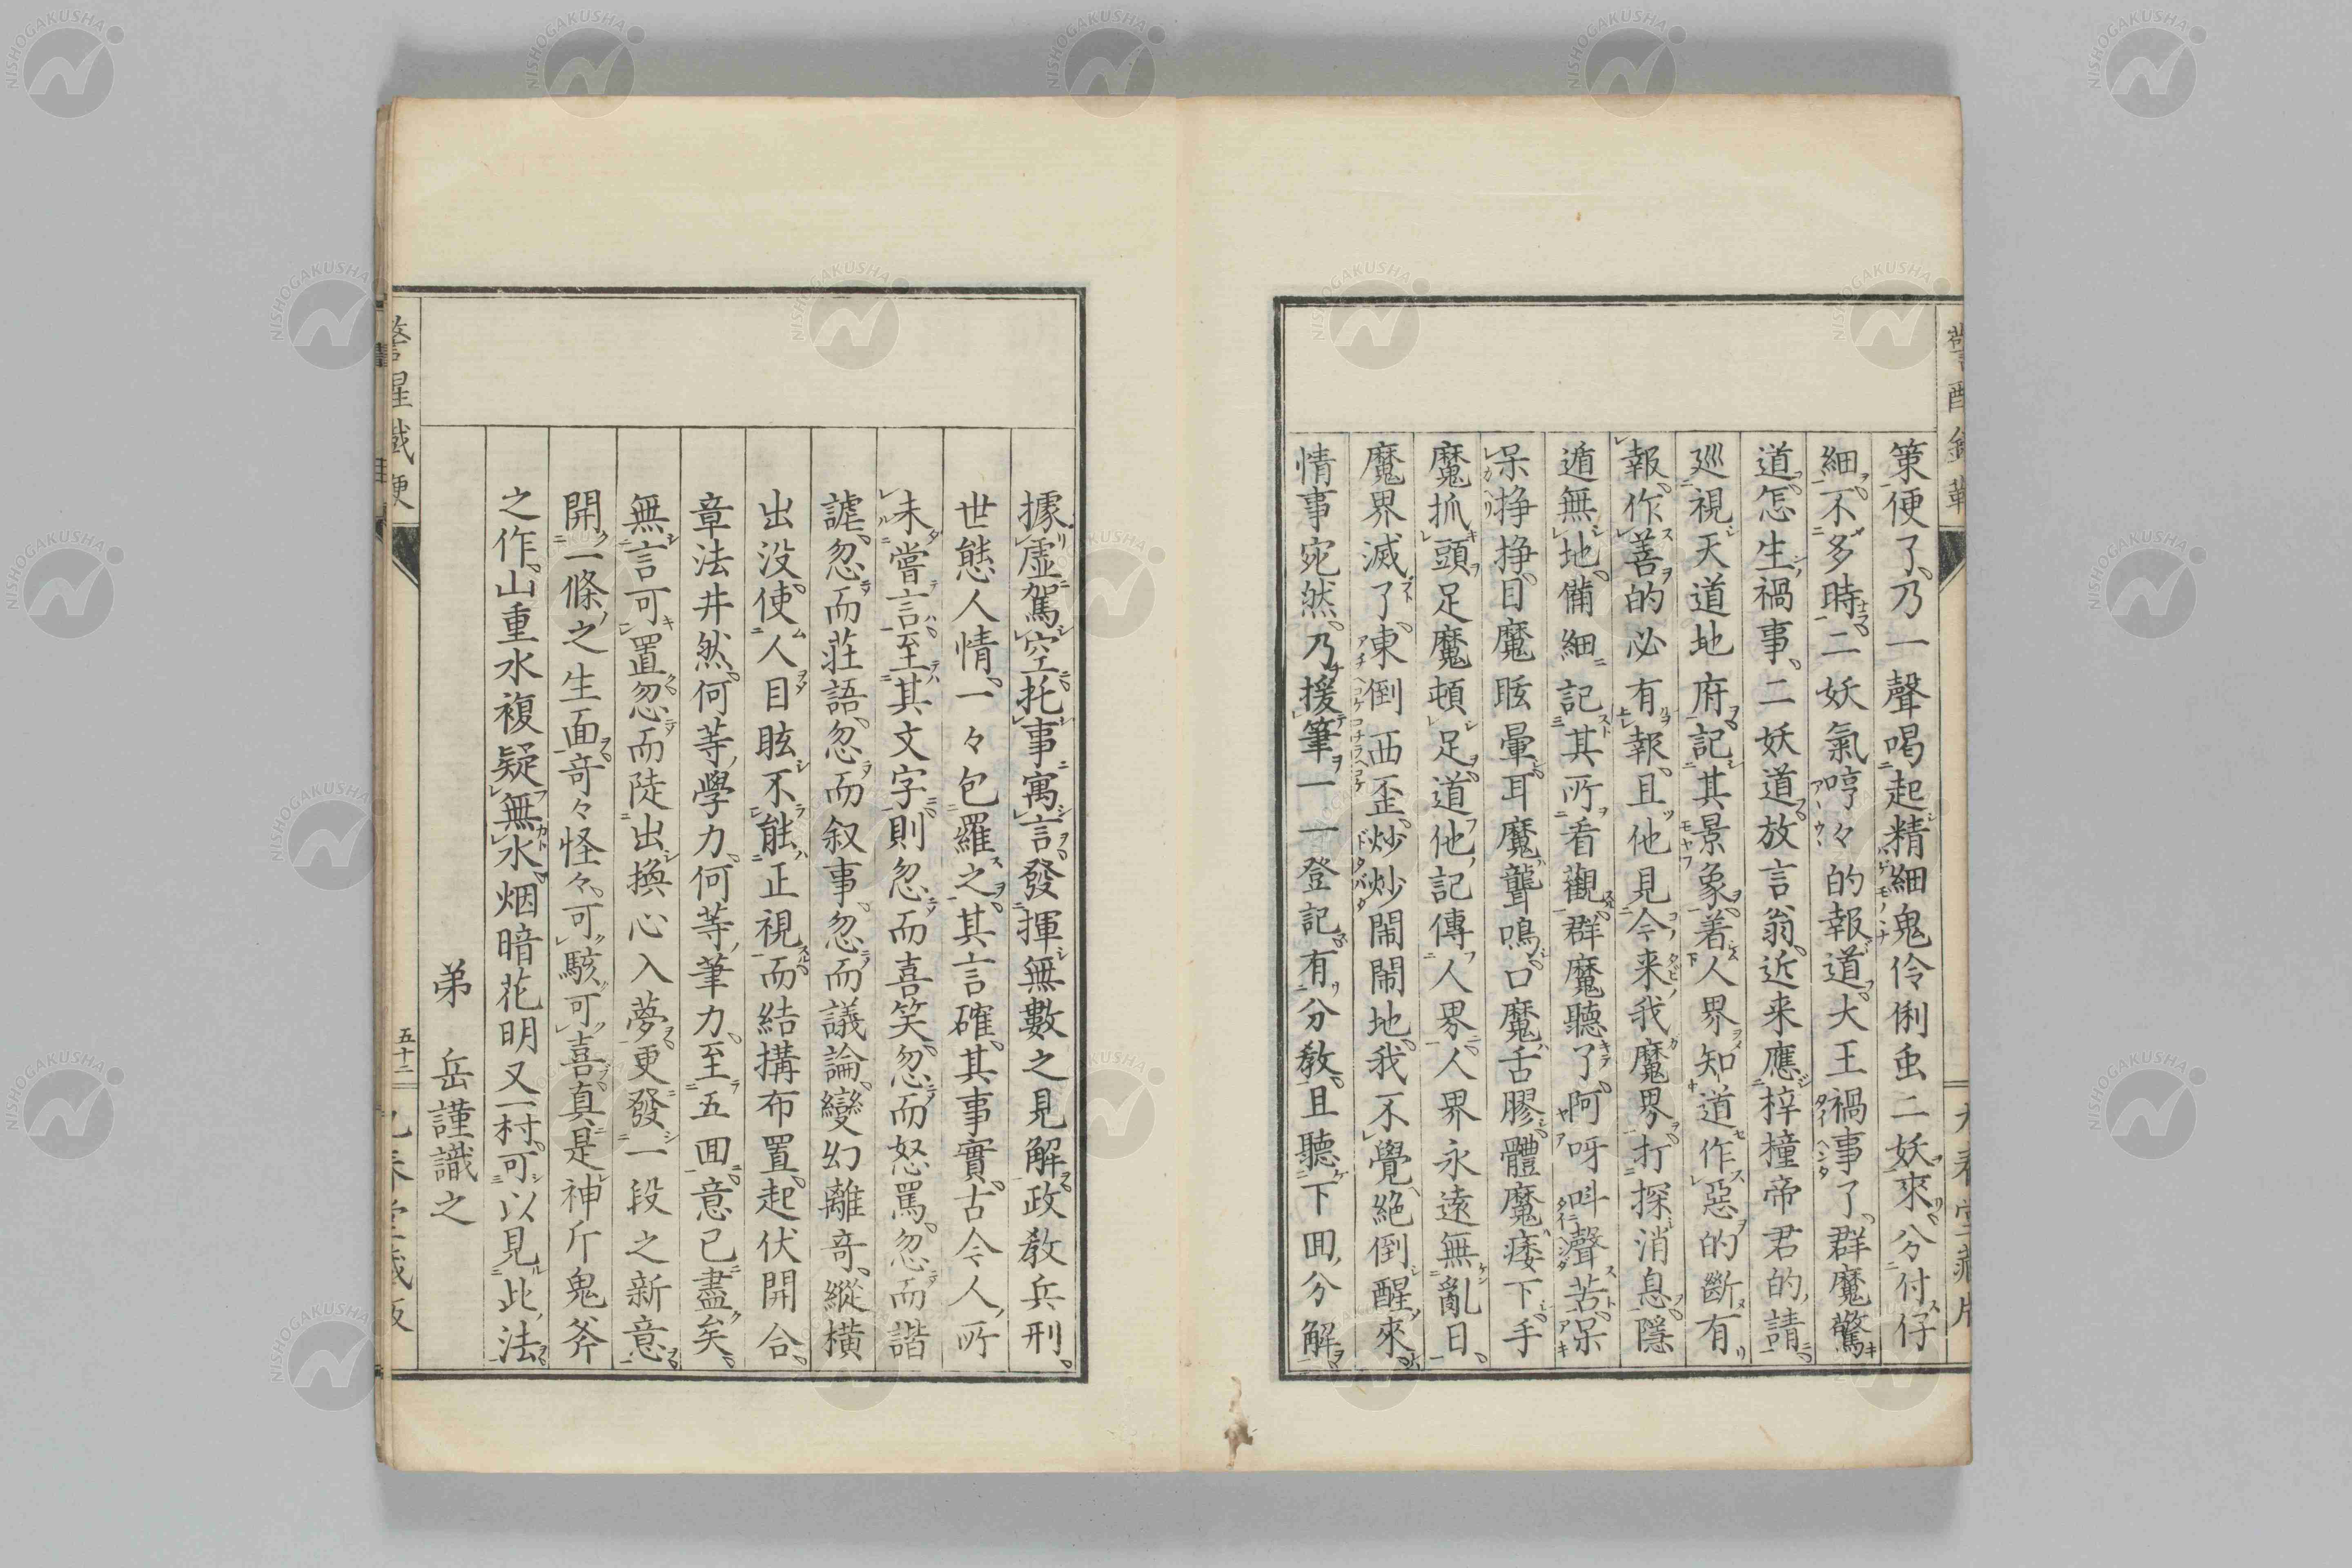 策便了、乃一聲喝起精細鬼伶俐虫二妖來、分付仔
細、不多時、二妖氣哼々的報道、大王禍事了、群魔驚
道、怎生禍事、二妖道、放言翁、近来應梓撞帝君的請、
巡視天道地府、記其景象、著人界知道作惡的斷有
報、作善的必有報、且他見今来我魔界、打探消息、隱
遁無地、備細記其所看觀、群魔聽了、阿呀呌聲苦、呆
呆掙掙、目魔眩暈、耳魔聾鳴、口魔舌膠、體魔痿下、手
魔抓頭、足魔頓足、道他記傳人界、人界永遠無亂日、
魔界滅了、東倒西歪、炒炒鬧鬧地、我不覺絶倒醒來、
情事宛然、乃援筆一一登記、有分教、且聽下回分解、
據虛駕空、托事寓言、發揮無數之見解、政教兵刑、
世態人情、一々包羅之、其言確、其事實、古今人所
未嘗言、至其文字、則忽而喜笑、忽而怒罵、忽而諧
謔、忽而莊語、忽而叙事、忽而議論、變幻離奇、縱橫
出没、使人目眩不能正視、而結搆布置、起伏開合、
章法井然、何等學力、何等筆力、至五回、意已盡矣、
無言可置、忽而陡出換心入夢、更發一段之新意、
開一條之生面、奇々怪々、可駭可喜、真是神斤鬼斧
之作、山重水複疑無水、烟暗花明又一村、可以見此法、
弟　岳謹識之
警醒鐵鞭
五十二